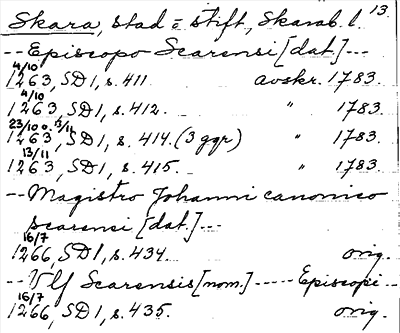 Skara, stad o stift, Skarab. l. 13.
-- Episcopo Scarensi [dat.] ---
4/10
1263, SD1, s. 411 avskr. 1783.
4/10
1263, SD1, s. 412. " 1783.
23/10 o. 13/11
1263, SD1, s. 414. (3 ggr) " 1783.
13/11
1263, SD1, s. 415. " 1783.
-- Magistro Johanni canonico
scarensi [dat.] ---
16/7
1266, SD1, s. 434. orig.
-- Vlf Scarensis [nom.] ----- Episcopi --
16/7
1266, SD1, s. 435. orig.